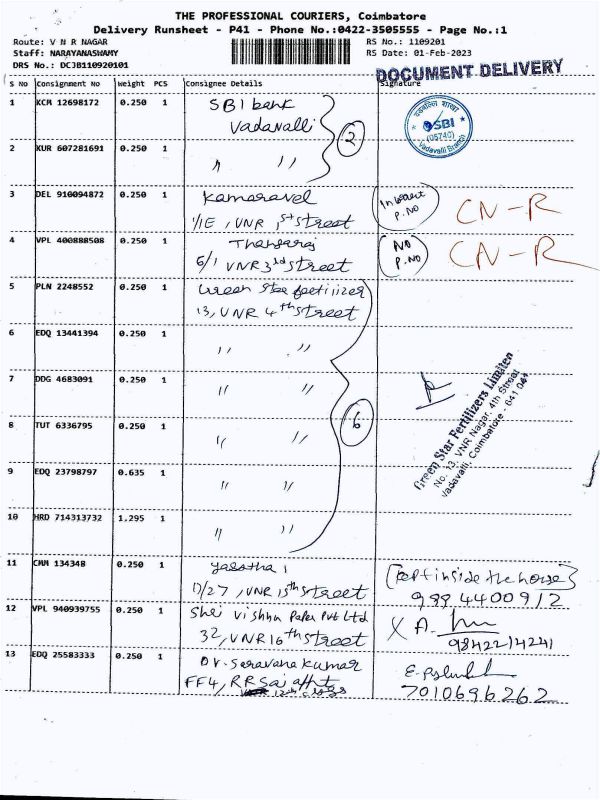 THE PROFESSIONAL COURIERS, Coimbatore
Delivery Runsheet - P41 - Phone No.:0422-3505555 - Page No.:1
Route: V N R NAGAR RS No.: 1109201
Staff: NARAYANASWAMY RS Date: 01-Feb-2023
DRS No.: DCJB110920101
DOCUMENT DELIVERY
S No Consignment No Weight PCS Consignee Details Signature
1 KCM 12698172 0.250 1 SBI bank
Vadavalli
2
SBI
(05740)
Vadavalli Branch
2 KUR 607281691 0.250 1 " "
3 DEL 910094872 0.250 1 Kamaravel
1/1E, VNR 1st street
P.NO
CN-R
4 VPL 400888508 0.250 1 Thangaraj
6/1 VNR 3rd street
NO
P.NO
CN-R
5 PLN 2248552 0.250 1 Green Star fertilizer
13, VNR 4th street
6 EDQ 13441394 0.250 1 " "
7 DDG 4683091 0.250 1 " "
8 TUT 6336795 0.250 1 " "
6
Green Star Fertilizers Limited
No. 13, VNR Nagar, 4th Street
Vadavalli, Coimbatore - 641 041
9 EDQ 23798797 0.635 1 " "
10 HRD 714313732 1.295 1 " "
11 CMM 134348 0.250 1
17/27, VNR 15th street
(kept inside the house)
9894400912
12 VPL 940939755 0.250 1 Shri Vishnu Paper Pvt Ltd
32, VNR 16th street
X A.
9842214241
13 EDQ 25583333 0.250 1 Dr. Saravana Kumar
FF4, RR Sai
12th cross
7010696262